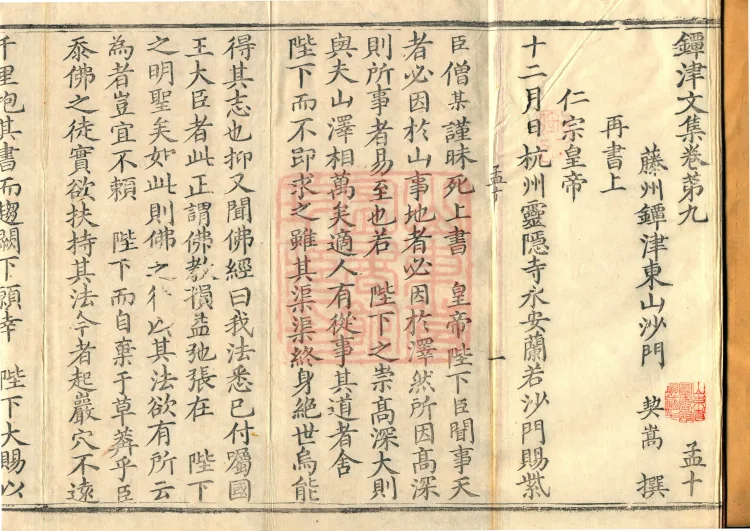 鐔津文集卷第九 孟十
藤州鐔津東山沙門 契嵩 撰
再書上
仁宗皇帝
十二月日杭州靈隱寺永安蘭若沙門賜紫
孟十 一
臣僧某謹昧死上書 皇帝陛下臣聞事天
者必因於山事地者必因於澤然所因高深
則所事者易至也若 陛下之崇高深大則
與夫山澤相萬矣適人有從事其道者舍
陛下而不即求之雖其渠渠終身絕世烏能
得其志也抑又聞佛經曰我法悉已付囑國
王大臣者此正謂佛教損益弛張在 陛下
之明聖矣如此則佛之行以其法欲有所云
為者豈宜不賴 陛下而自棄于草莽乎臣
忝佛之徒實欲扶持其法今者起巖穴不遠
千里抱其書而趨闕下願幸 陛下大賜以